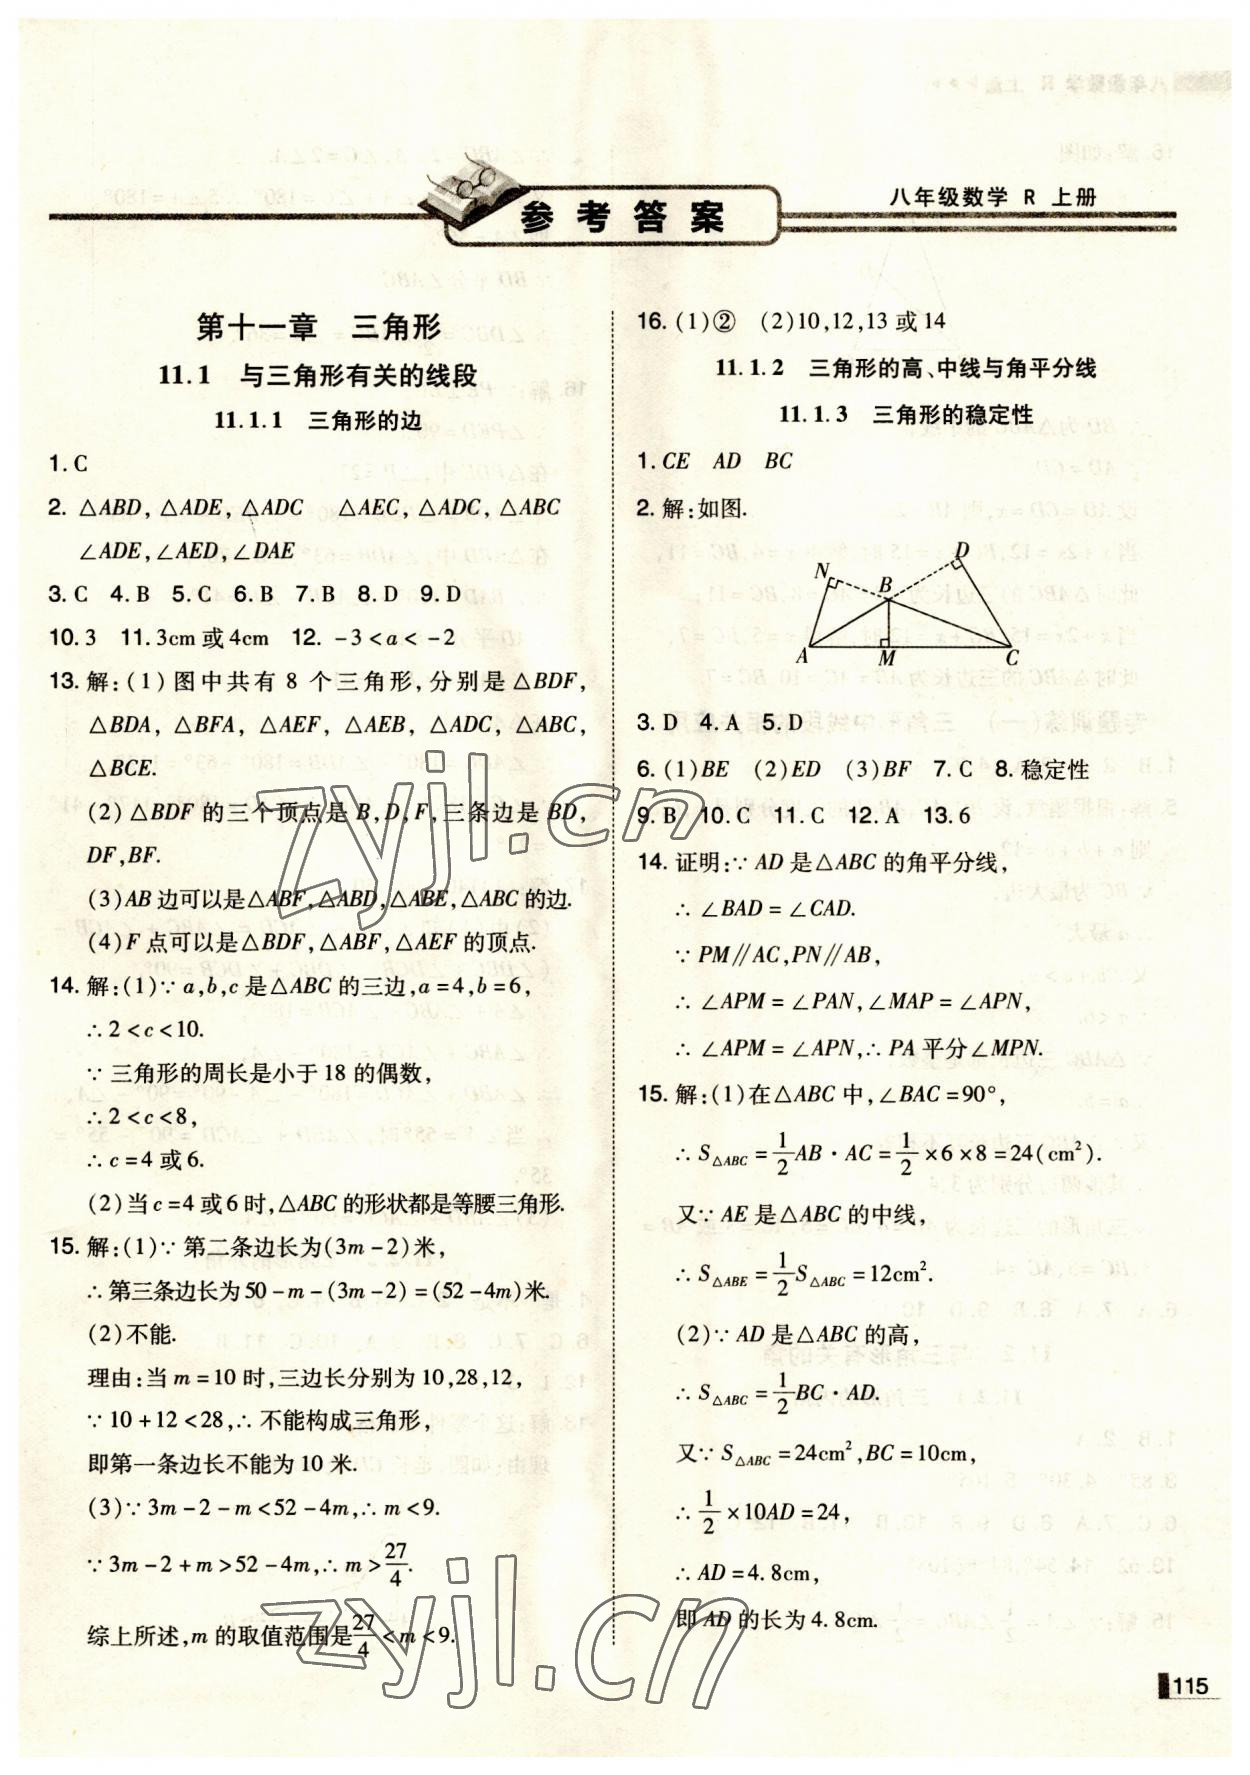 八年级数学 R 上册
参考答案
第十一章 三角形
11.1 与三角形有关的线段
11.1.1 三角形的边
1. C
2. △ABD, △ADE, △ADC △AEC, △ADC, △ABC
∠ADE, ∠AED, ∠DAE
3. C 4. B 5. C 6. B 7. B 8. D 9. D
10. 3 11. 3cm 或 4cm 12. -3<a<-2
13. 解:(1)图中共有 8 个三角形,分别是△BDF,
△BDA, △BFA, △AEF, △AEB, △ADC, △ABC,
△BCE.
(2)△BDF 的三个顶点是 B,D,F,三条边是 BD,
DF,BF.
(3)AB 边可以是△ABF,△ABD,△ABE,△ABC 的边.
(4)F 点可以是△BDF,△ABF,△AEF 的顶点.
14. 解:(1)∵a,b,c 是△ABC 的三边,a=4,b=6,
∴2<c<10.
∵三角形的周长是小于 18 的偶数,
∴2<c<8,
∴c=4 或 6.
(2)当 c=4 或 6 时,△ABC 的形状都是等腰三角形.
15. 解:(1)∵第二条边长为(3m-2)米,
∴第三条边长为 50-m-(3m-2)=(52-4m)米.
(2)不能.
理由:当 m=10 时,三边长分别为 10,28,12,
∵10+12<28,∴不能构成三角形,
即第一条边长不能为 10 米.
(3)∵3m-2-m<52-4m,∴m<9.
∵3m-2+m>52-4m,∴m>27/4.
综上所述,m 的取值范围是27/4<m<9.
16. (1)② (2)10,12,13 或 14
11.1.2 三角形的高、中线与角平分线
11.1.3 三角形的稳定性
1. CE AD BC
2. 解:如图.
D
N
B
A M C
3. D 4. A 5. D
6. (1)BE (2)ED (3)BF 7. C 8. 稳定性
9. B 10. C 11. C 12. A 13. 6
14. 证明:∵AD 是△ABC 的角平分线,
∴∠BAD=∠CAD.
∵PM∥AC,PN∥AB,
∴∠APM=∠PAN,∠MAP=∠APN,
∴∠APM=∠APN,∴PA 平分∠MPN.
15. 解:(1)在△ABC 中,∠BAC=90°,
∴S△ABC=1/2AB·AC=1/2×6×8=24(cm²).
又∵AE 是△ABC 的中线,
∴S△ABE=1/2S△ABC=12cm².
(2)∵AD 是△ABC 的高,
∴S△ABC=1/2BC·AD.
又∵S△ABC=24cm²,BC=10cm,
∴1/2×10AD=24,
∴AD=4.8cm,
即 AD 的长为 4.8cm.
115
zyjl.cn
zyjl.cn